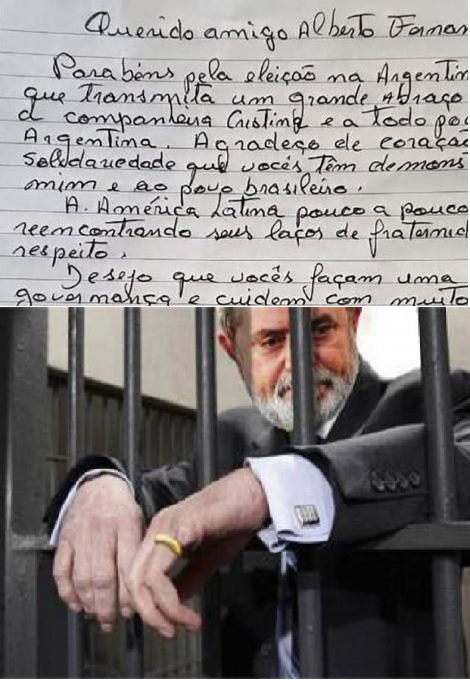 Querido amigo Alberto Fernan
Parabéns pela eleição na Argentin
que transmita um grande Abraço
a companheira Cristina e a todo pov
Argentina. Agradeço de coração
solidariedade que vocês têm demons
mim e ao povo brasileiro.
A. América Latina pouco a pouco
reencontrando seus laços de fraternid
respeito.
Desejo que vocês façam uma
governança e cuidem com muito